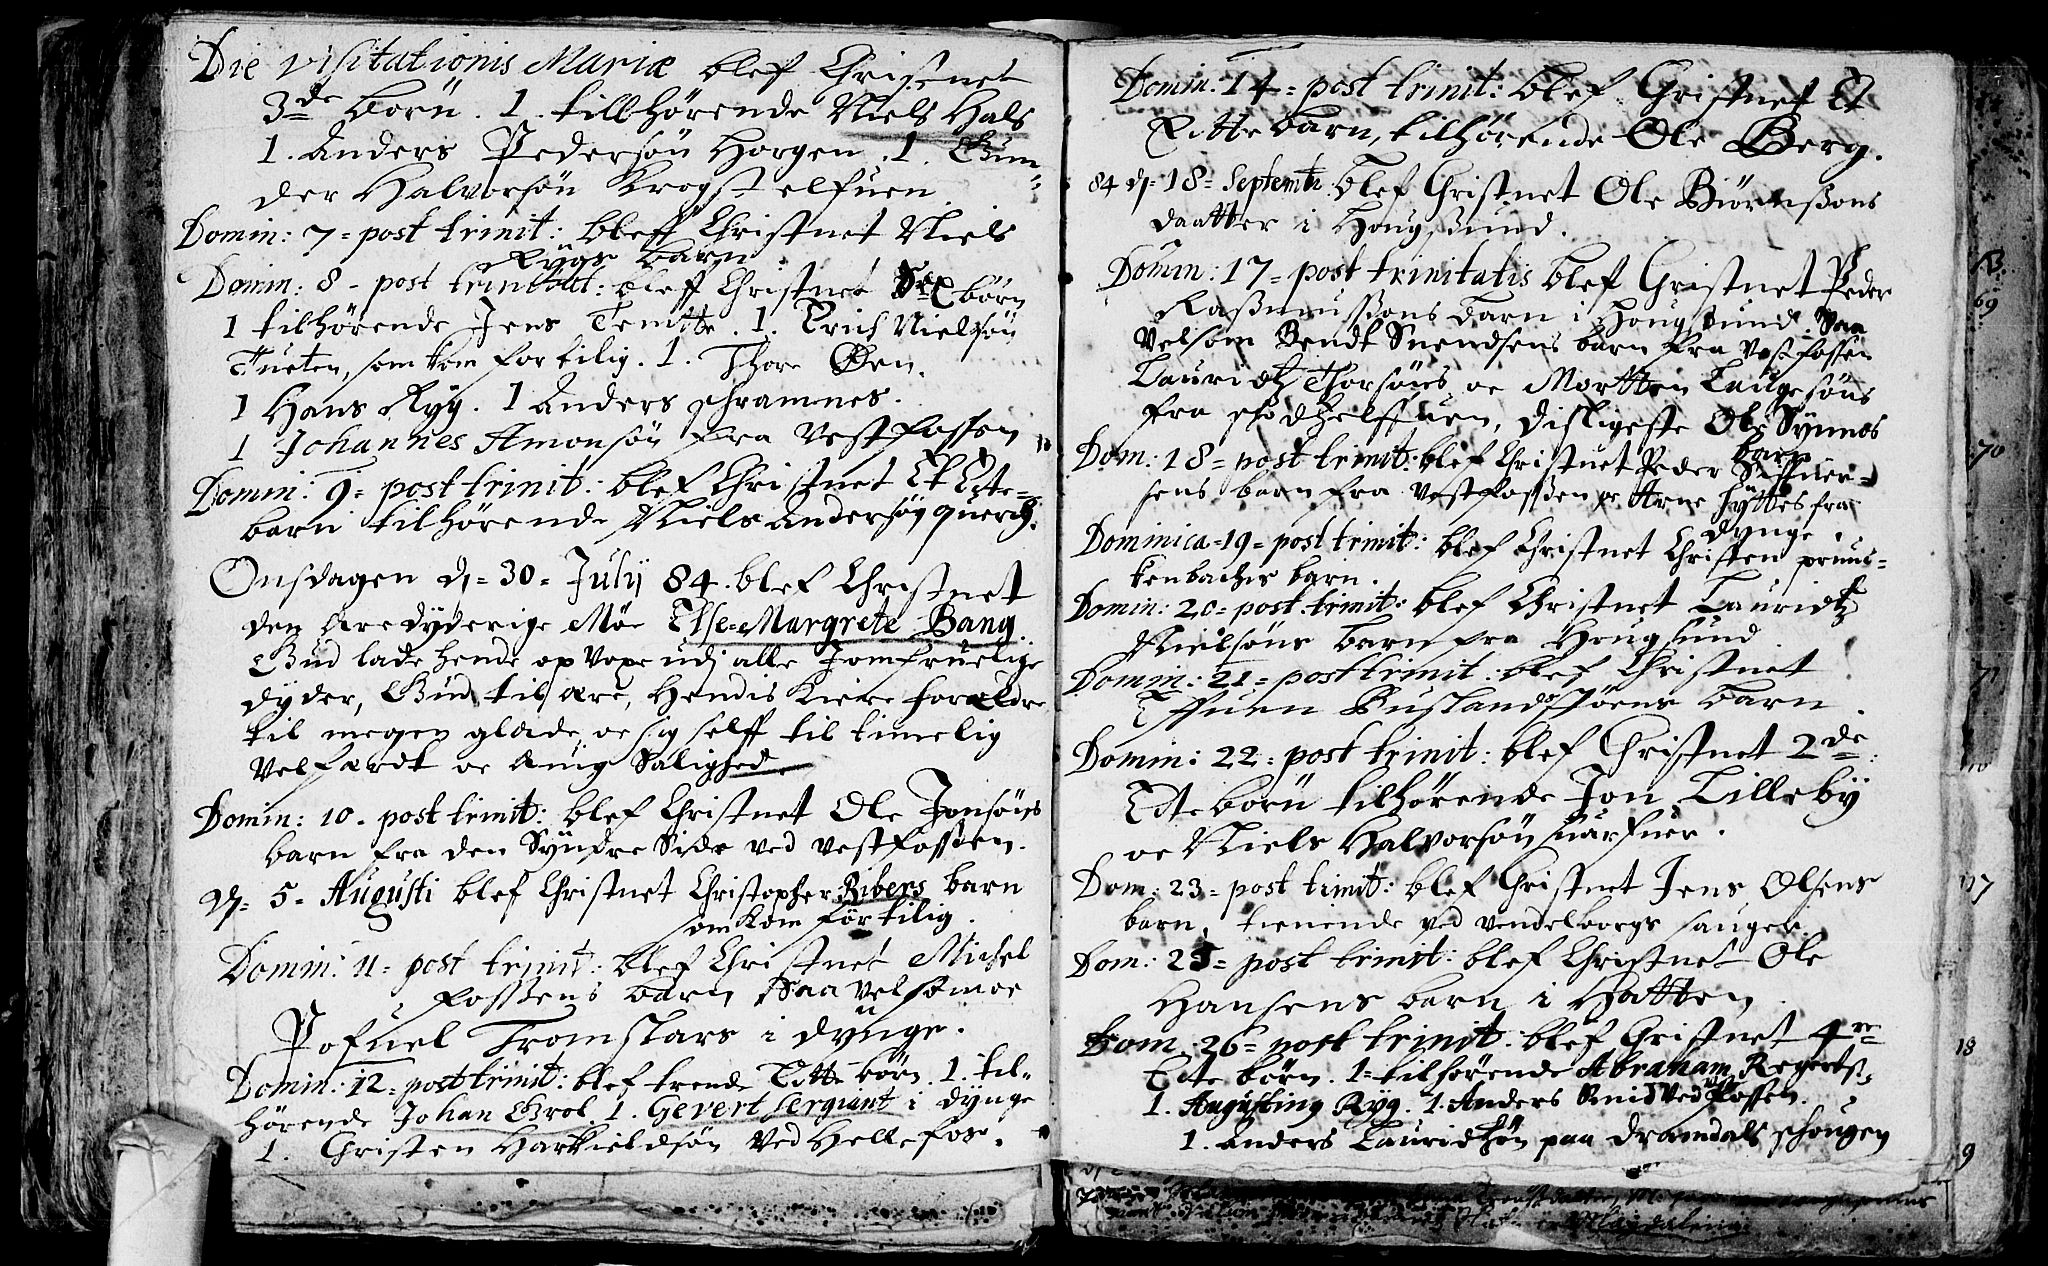 Die visitationis Mariæ blef Christnet
3de börn. 1. tillhörende Niels Hals
1. Anders Pedersön Horgen. 1. Gun-
der Halvorsön Krogst elfuen.
Domin: 7 = post trinit: bleff Christnet Niels
Rygs barn
Domin: 8 - post trinitat: bleff Christnet Sex börn
1 tilhörende Jens Temte. 1. Erich Nielsön
Fueten, som kom for tilig. 1. Thore Øen.
1 Hans Ryg. 1 Anders schrammes.
1 Johannes Amonsön fra Vestfossen
Domin: 9 = post trinit: blef Christnet Et Ecte-
barn tilhörende Niels Andersön
Onsdagen d. 30 = July 84. blef Christnet
den ære dyderige Møe Else-Margrete Bang.
Gud lade hende op voxe udj alle Jomfruelige
dyder, Gud til ære, hendis kiere forældre
til megen glæde, oc sig self til timelig
velfærdt oc ævig Salighed.
Domin: 10. post trinit: blef Christnet Ole Jonsöns
barn fra den Syndre Side ved vestfossen.
d. 5 = Augusti blef Christnet Christopher Ribers barn
som kom för tilig.
Domin: 11 = post trinit: blef Christnet Michel
fossens barn Saavelsom oc
Pofuel Tromslars i dynge.
Domin: 12 = post trinit: blef trende Ecte börn. 1. til-
hörende Johan Grol 1. Gevert sergiant i dynge
1. Christen Harkieldsön ved Hellefos.
Domin: 14 = post trinit: blef Christnet Et
Ecte barn, tilhörende Ole Berg.
84 d. 18 = Septemb: blef Christnet Ole Biörnsons
daatter i Hougsund.
Domin: 17 = post trinitatis blef Christnet Peder
Rasmussons barn i Hougsund. Saa
velsom Bendt Suendsens barn fra vestfossen
Lauridtz Thorsöns oc Mortten Laugesöns
fra, disligeste Ole Synnes
barn
Dom: 18 = post trinit: blef Christnet Peder
sens barn fra vestfossen oc Arne hyttes fra
dynge
Dominica = 19 = post trinit: blef Christnet Christen prinns-
kenbachs barn.
Domin: 20 = post trinit: blef Christnet Lauridtz
Nielsöns barn fra Hougsund
Domin: 21 = post trinit: blef Christnet
Effuen Buslands barn.
Domin: 22 = post trinit: blef Christnet 2de
Ecte börn tilhörende Jon Lilleby
oc Niels Halvorsön
Dom: 23 = post trinit: blef Christnet Jens Olsens
barn, tienende ved vendelborgs sauger.
Dom: 25 = post trinit: blef Christnet Ole
Hansens barn i Hatten
Dom: 26 = post trinit: blef Christnet 4re
Ecte börn. 1 = tilhörende Abraham
1. Augustinq Ryg. 1. Anders Smid ved fossen.
1. Anders Lauridtzön paa dramdals schougen